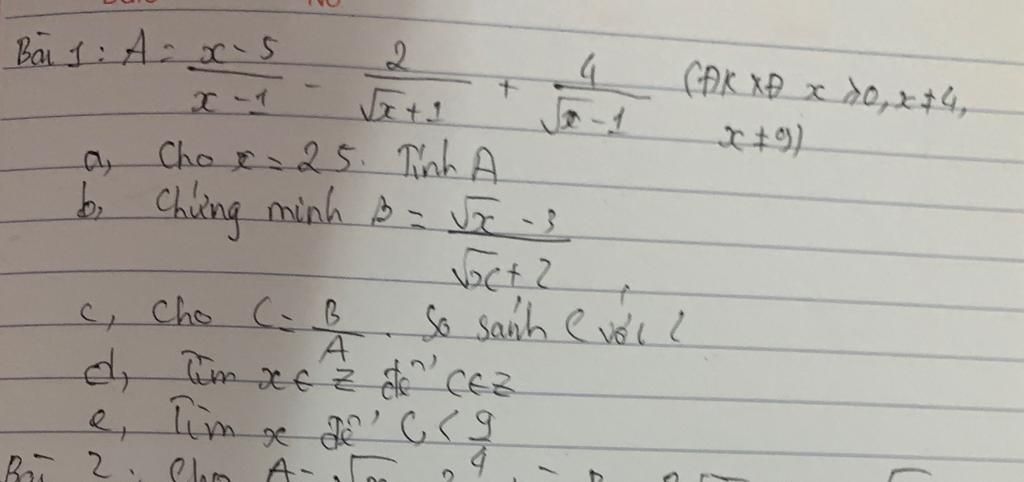 No
Bài 1: A = \frac{x-5}{x-1} - \frac{2}{\sqrt{x}+1} + \frac{4}{\sqrt{x}-1} (ĐKXĐ x ≥ 0, x ≠ 4,
x ≠ 9)
a, Cho x = 25. Tính A
b, Chứng minh B = \frac{\sqrt{x}-3}{\sqrt{x}+2}
c, Cho C = \frac{B}{A}. So sánh C với
d, Tìm x ∈ Z để C ∈ Z
e, Tìm x để C < \frac{9}{4}
Bài 2: Cho A =